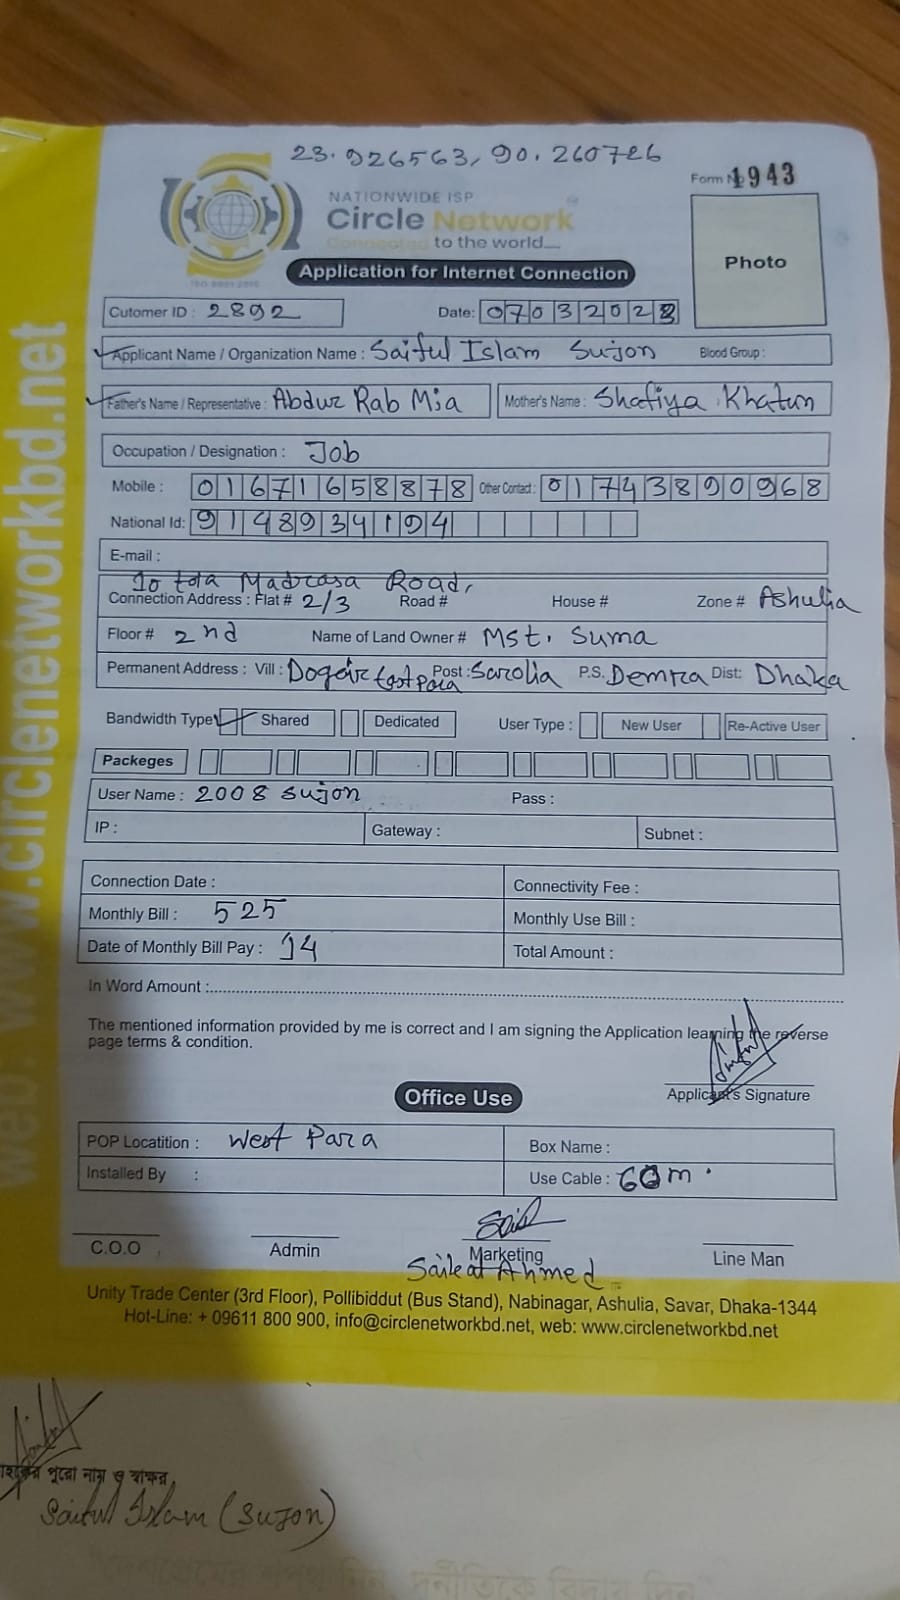 23.926563, 90.260726
Form No 1943
NATIONWIDE ISP
Circle Network
Connected to the world...
ISO 9001:2015
Photo
Application for Internet Connection
Cutomer ID : 2892
Date: 0703202
Applicant Name / Organization Name : Saiful Islam Sujon Blood Group :
Father's Name / Representative : Abdur Rab Mia Mother's Name : Shafiya Khatun
Occupation / Designation : Job
Mobile : 01671658878 Other Contact : 01743890968
National Id: 9148934194
E-mail :
10 tola Madrasa Road,
Connection Address : Flat # 2/3 Road # House # Zone # Ashulia
Floor # 2nd Name of Land Owner # Mst. Suma
Permanent Address : Vill : Dogair Post : Sarolia P.S. Demra Dist: Dhaka
Bandwidth Type Shared Dedicated User Type : New User Re-Active User
Packeges
User Name : 2008 sujon Pass :
IP : Gateway : Subnet :
Connection Date : Connectivity Fee :
Monthly Bill : 525 Monthly Use Bill :
Date of Monthly Bill Pay : 14 Total Amount :
In Word Amount :
The mentioned information provided by me is correct and I am signing the Application learning the reverse
page terms & condition.
Applicant's Signature
Office Use
POP Locatition : West Para Box Name :
Installed By : Use Cable : 60m
C.O.O Admin Marketing Line Man
Saikat Ahmed
Unity Trade Center (3rd Floor), Pollibiddut (Bus Stand), Nabinagar, Ashulia, Savar, Dhaka-1344
Hot-Line: + 09611 800 900, info@circlenetworkbd.net, web: www.circlenetworkbd.net
web: www.circlenetworkbd.net
পুরো নাম ও স্বাক্ষর
Saiful Islam (Sujon)